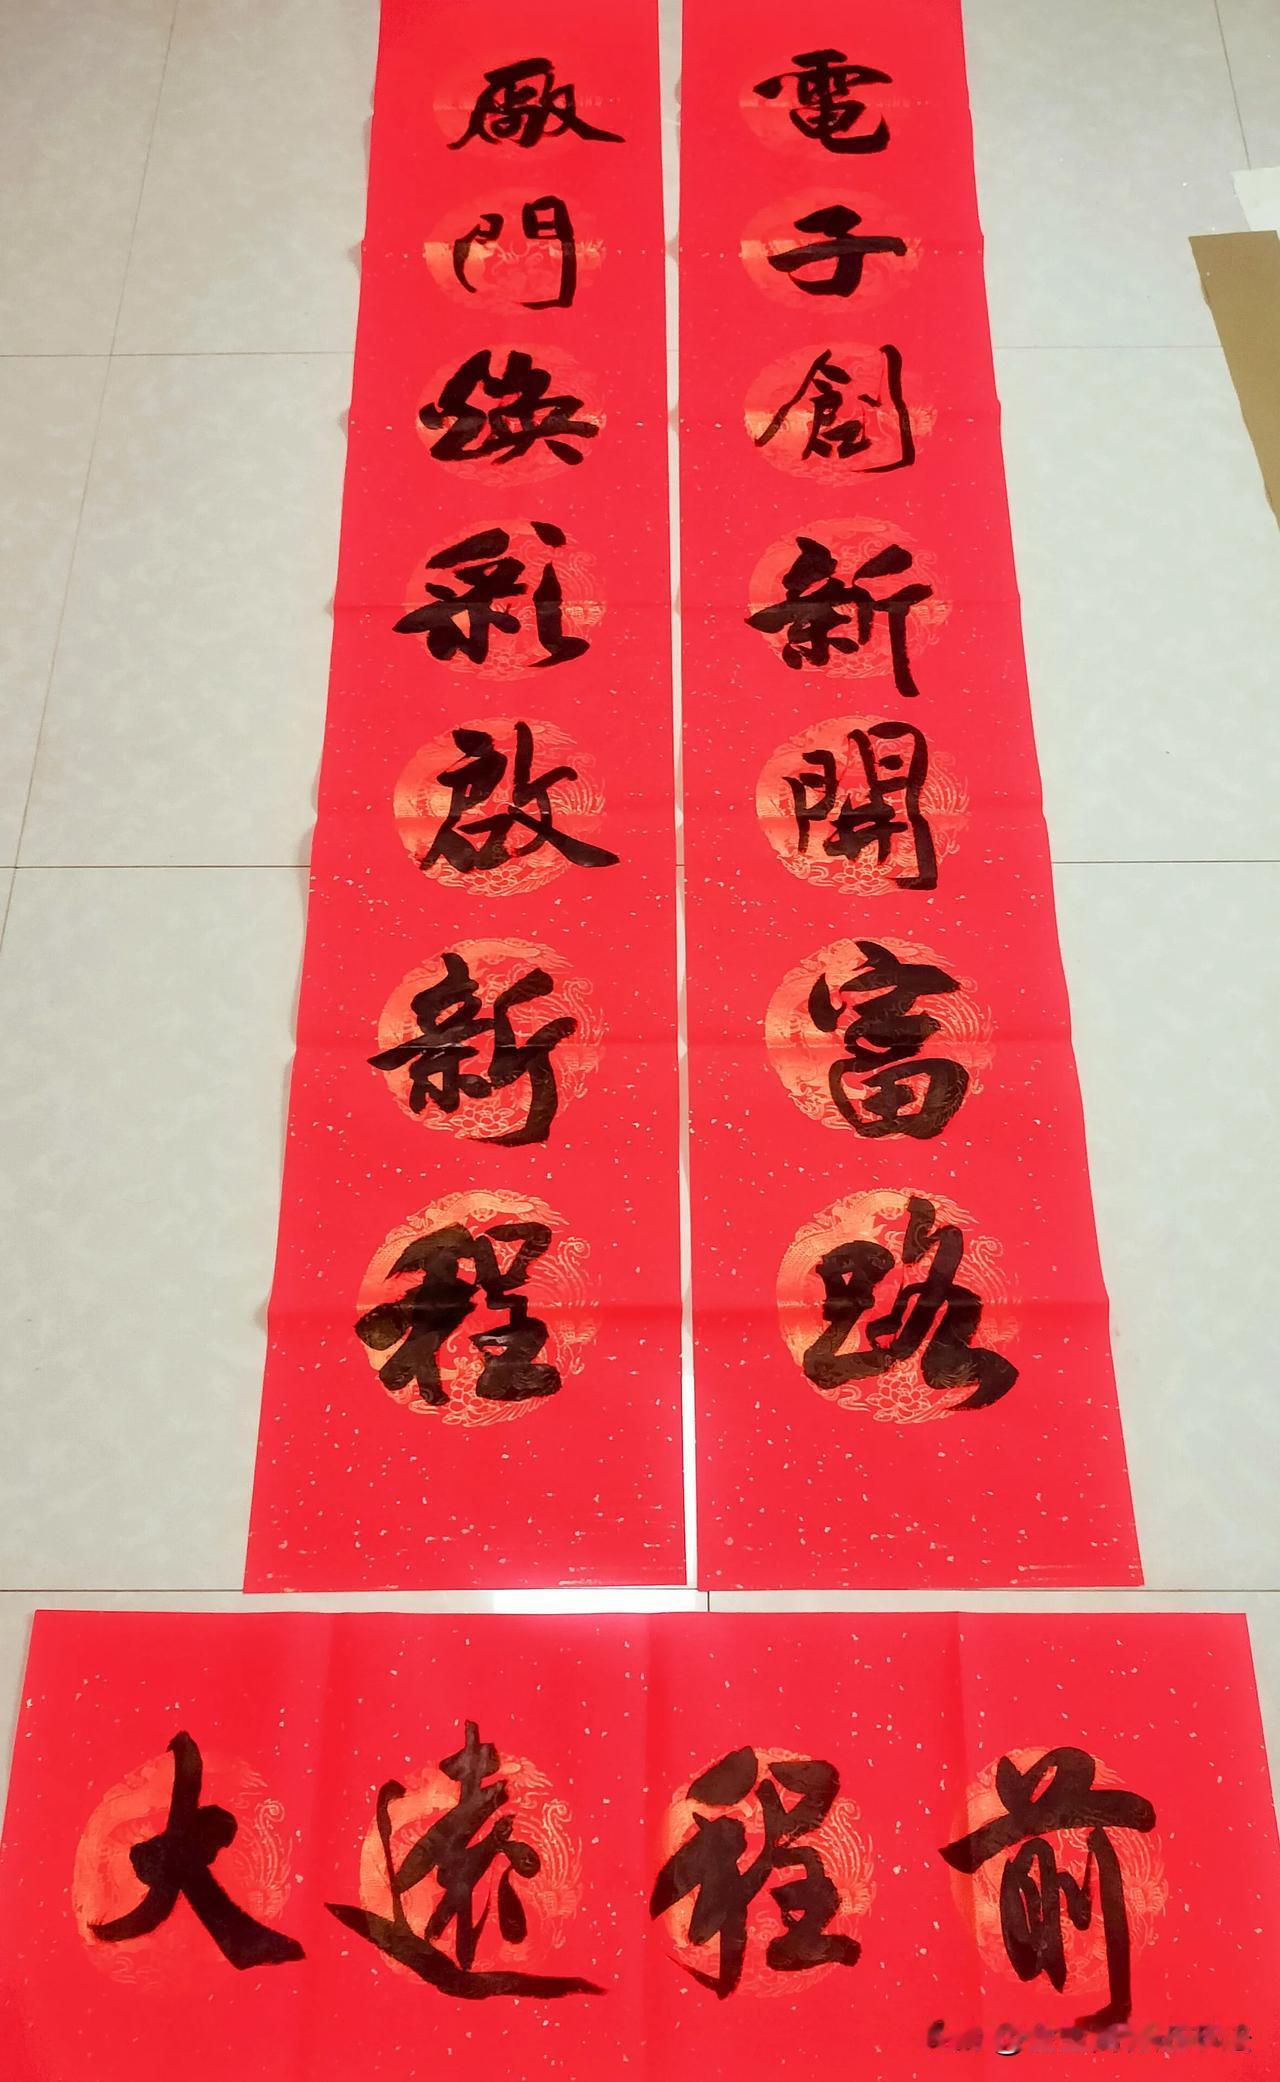 電子創新開富路
廠門焕彩啟新程
前程遠大